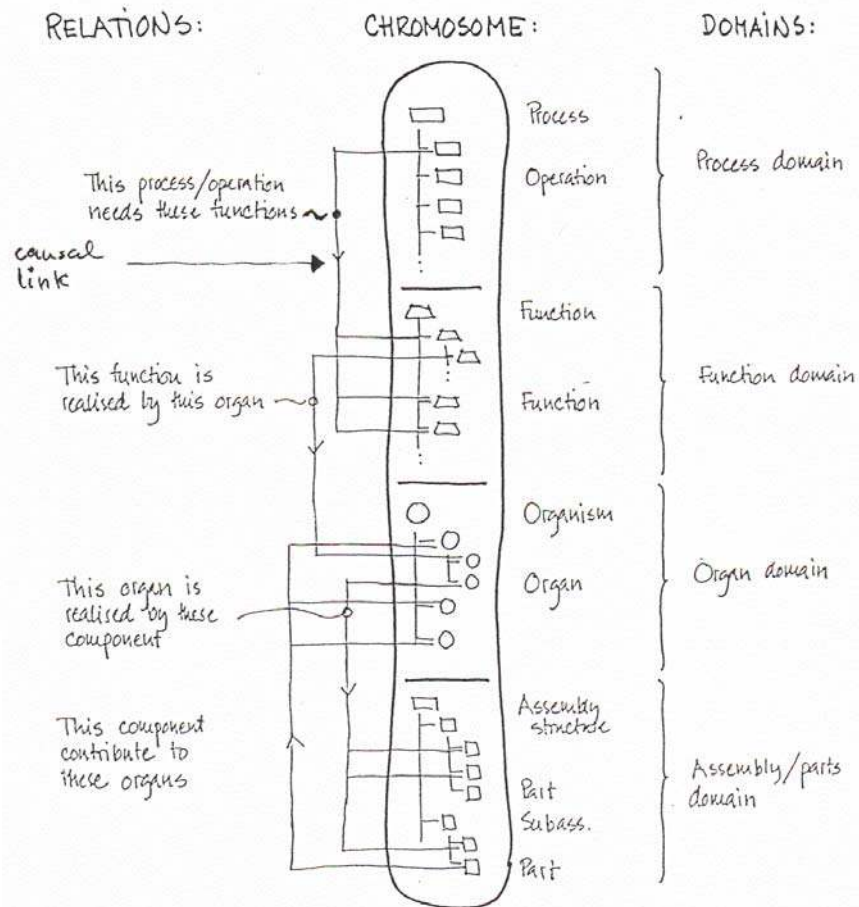 RELATIONS:
CHROMOSOME:
DOMAINS:
This process/operation
needs these functions
causal
link
This function is
realised by this organ
This organ is
realised by these
component
This component
contribute to
these organs
Process
Operation
Function
Function
Organism
Organ
Assembly
structure
Part
Subass.
Part
Process domain
Function domain
Organ domain
Assembly/parts
domain